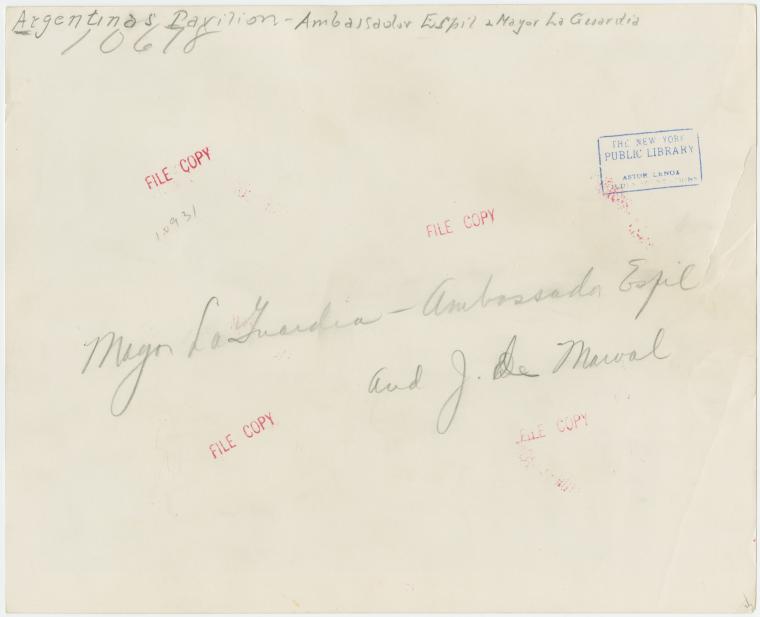 Argentinas Pavilion - Ambassador Espil & Mayor La Guardia
10618
FILE COPY
THE NEW YORK
PUBLIC LIBRARY
ASTOR LENOX
10931
FILE COPY
Mayor LaGuardia - Ambassador Espil
and J. De Marval
FILE COPY
FILE COPY